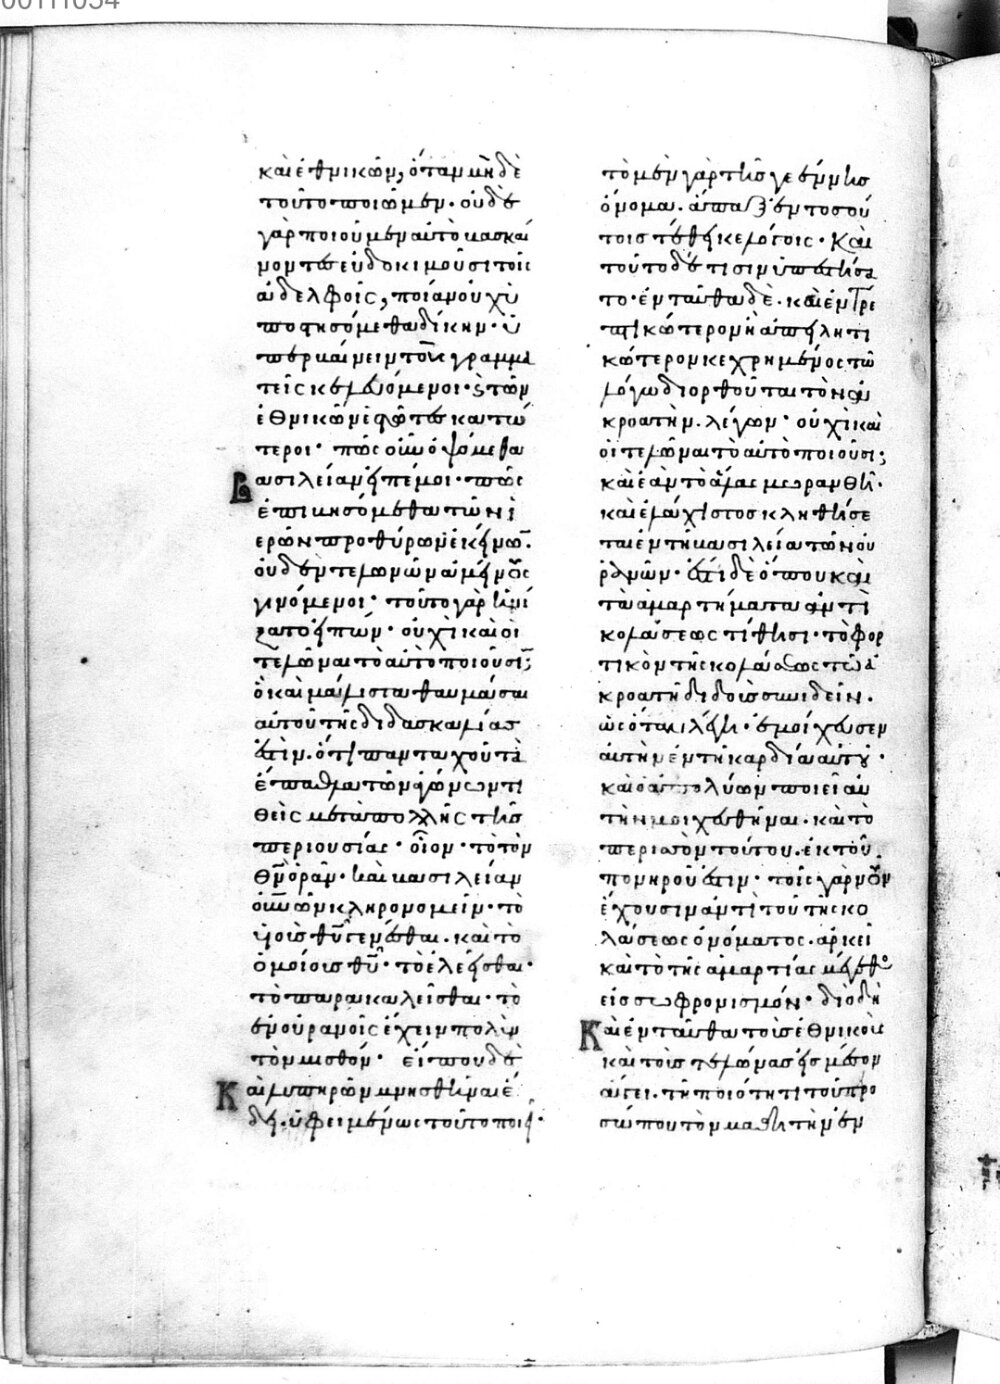 καὶ ἐθνικῶν, ὅταν μηδὲ
τοῦτο ποιῶμεν· οὐδὲ
γὰρ ποιοῦμεν αὐτὸ βασκαί
νοντες εὐδοκιμοῦσι τοῖς
ἀδελφοῖς, ποίαν οὐχ ὑ
ποστησόμεθα δίκην· ὑ
περβαίνειν τοὺς γραμμα
τεῖς κελευόμενοι· ϛ τῶν
ἐθνικῶν ἑστῶτες κατώ
τεροι· πῶς οὖν ὀψόμεθα
βασιλείαν εἰπέ μοι· πῶς
ἐπιβησόμεθα τῶν ἱ
ερῶν προθύρων ἐκείνων·
οὐδὲν τελωνῶν ἀμείνους
γινόμενοι· τοῦτο γὰρ ᾐνί
ξατο εἰπών· οὐχὶ καὶ οἱ
τελῶναι τὸ αὐτὸ ποιοῦσι;
ὃ καὶ μάλιστα θαυμάσαι
αὐτοῦ τῆς διδασκαλίας
ἐστὶν. ὅτι πανταχοῦ τὰ
ἔπαθλα τῶν ἀγώνων τι
θεὶς μετὰ πολλῆς τῆς
περιουσίας· οἷον· τὸ τὸν
θν ὁρᾶν· καὶ βασιλείαν
οὐνων κληρονομεῖν· τὸ
υἱοὺς θυ γενέσθαι. καὶ τὸ
ὁμοίους θυ· τὸ ἐλεεῖσθαι·
τὸ παρακαλεῖσθαι· τὸ
ἐν οὐρανοῖς ἔχειν πολὺν
τὸν μισθόν· εἴ που δὲ
καὶ λυπηρῶν μνησθῆναι ἔ
δει. ὑφειμένως τοῦτο ποιεῖ·
τὸ μὲν γὰρ τῆς γεέννης
ὄνομα. ἅπαξ ἐν τοσού
τοις τέθεικε λόγοις· Καὶ
τοῦτο δέ τισιν
το· ἐνταῦθα δὲ. καὶ ἐντρε
πτικώτερον ἢ ἀπειλητι
κώτερον κεχρημένος τῶ
λόγω διορθοῦται τὸν ἀ
κροατὴν. λέγων· οὐχὶ καὶ
οἱ τελῶναι τὸ αὐτὸ ποιοῦσι;
καὶ ἐὰν τὸ ἅλας μωρανθῇ·
καὶ ἐλάχιστος κληθήσε
ται ἐν τῆ βασιλεία τῶν οὐ
ρανῶν· ἔστι δὲ ὅπου καὶ
τὰ ἁμαρτήματα ἀντὶ
κολάσεως τίθησι· τὸ φορ
τικὸν τῆς κολάσεως τῶ ἀ
κροατῆ διδοὺς συνιδεῖν.
ὡς ὅταν λέγη· ἐμοίχευσεν
αὐτὴν ἐν τῆ καρδία αὐτοῦ·
καὶ ὁ ἀπολύων ποιεῖ αὐ
τὴν μοιχευθῆναι. καὶ τὸ
περισσὸν τούτου. ἐκ τοῦ
πονηροῦ ἐστιν· τοῖς γὰρ νοῦν
ἔχουσιν ἀντὶ τοῦ τῆς κο
λάσεως ὀνόματος. ἀρκεῖ
καὶ τὸ τῆς ἁμαρτίας μέγεθος
εἰς σωφρονισμόν· διὸ δὴ
Καὶ ἐνταῦθα τοὺς ἐθνικοὺς
καὶ τοὺς τελώνας εἰς μέσον
ἄγει. τῆ ποιότητι τοῦ προ
σώπου τὸν μαθητὴν ἐν